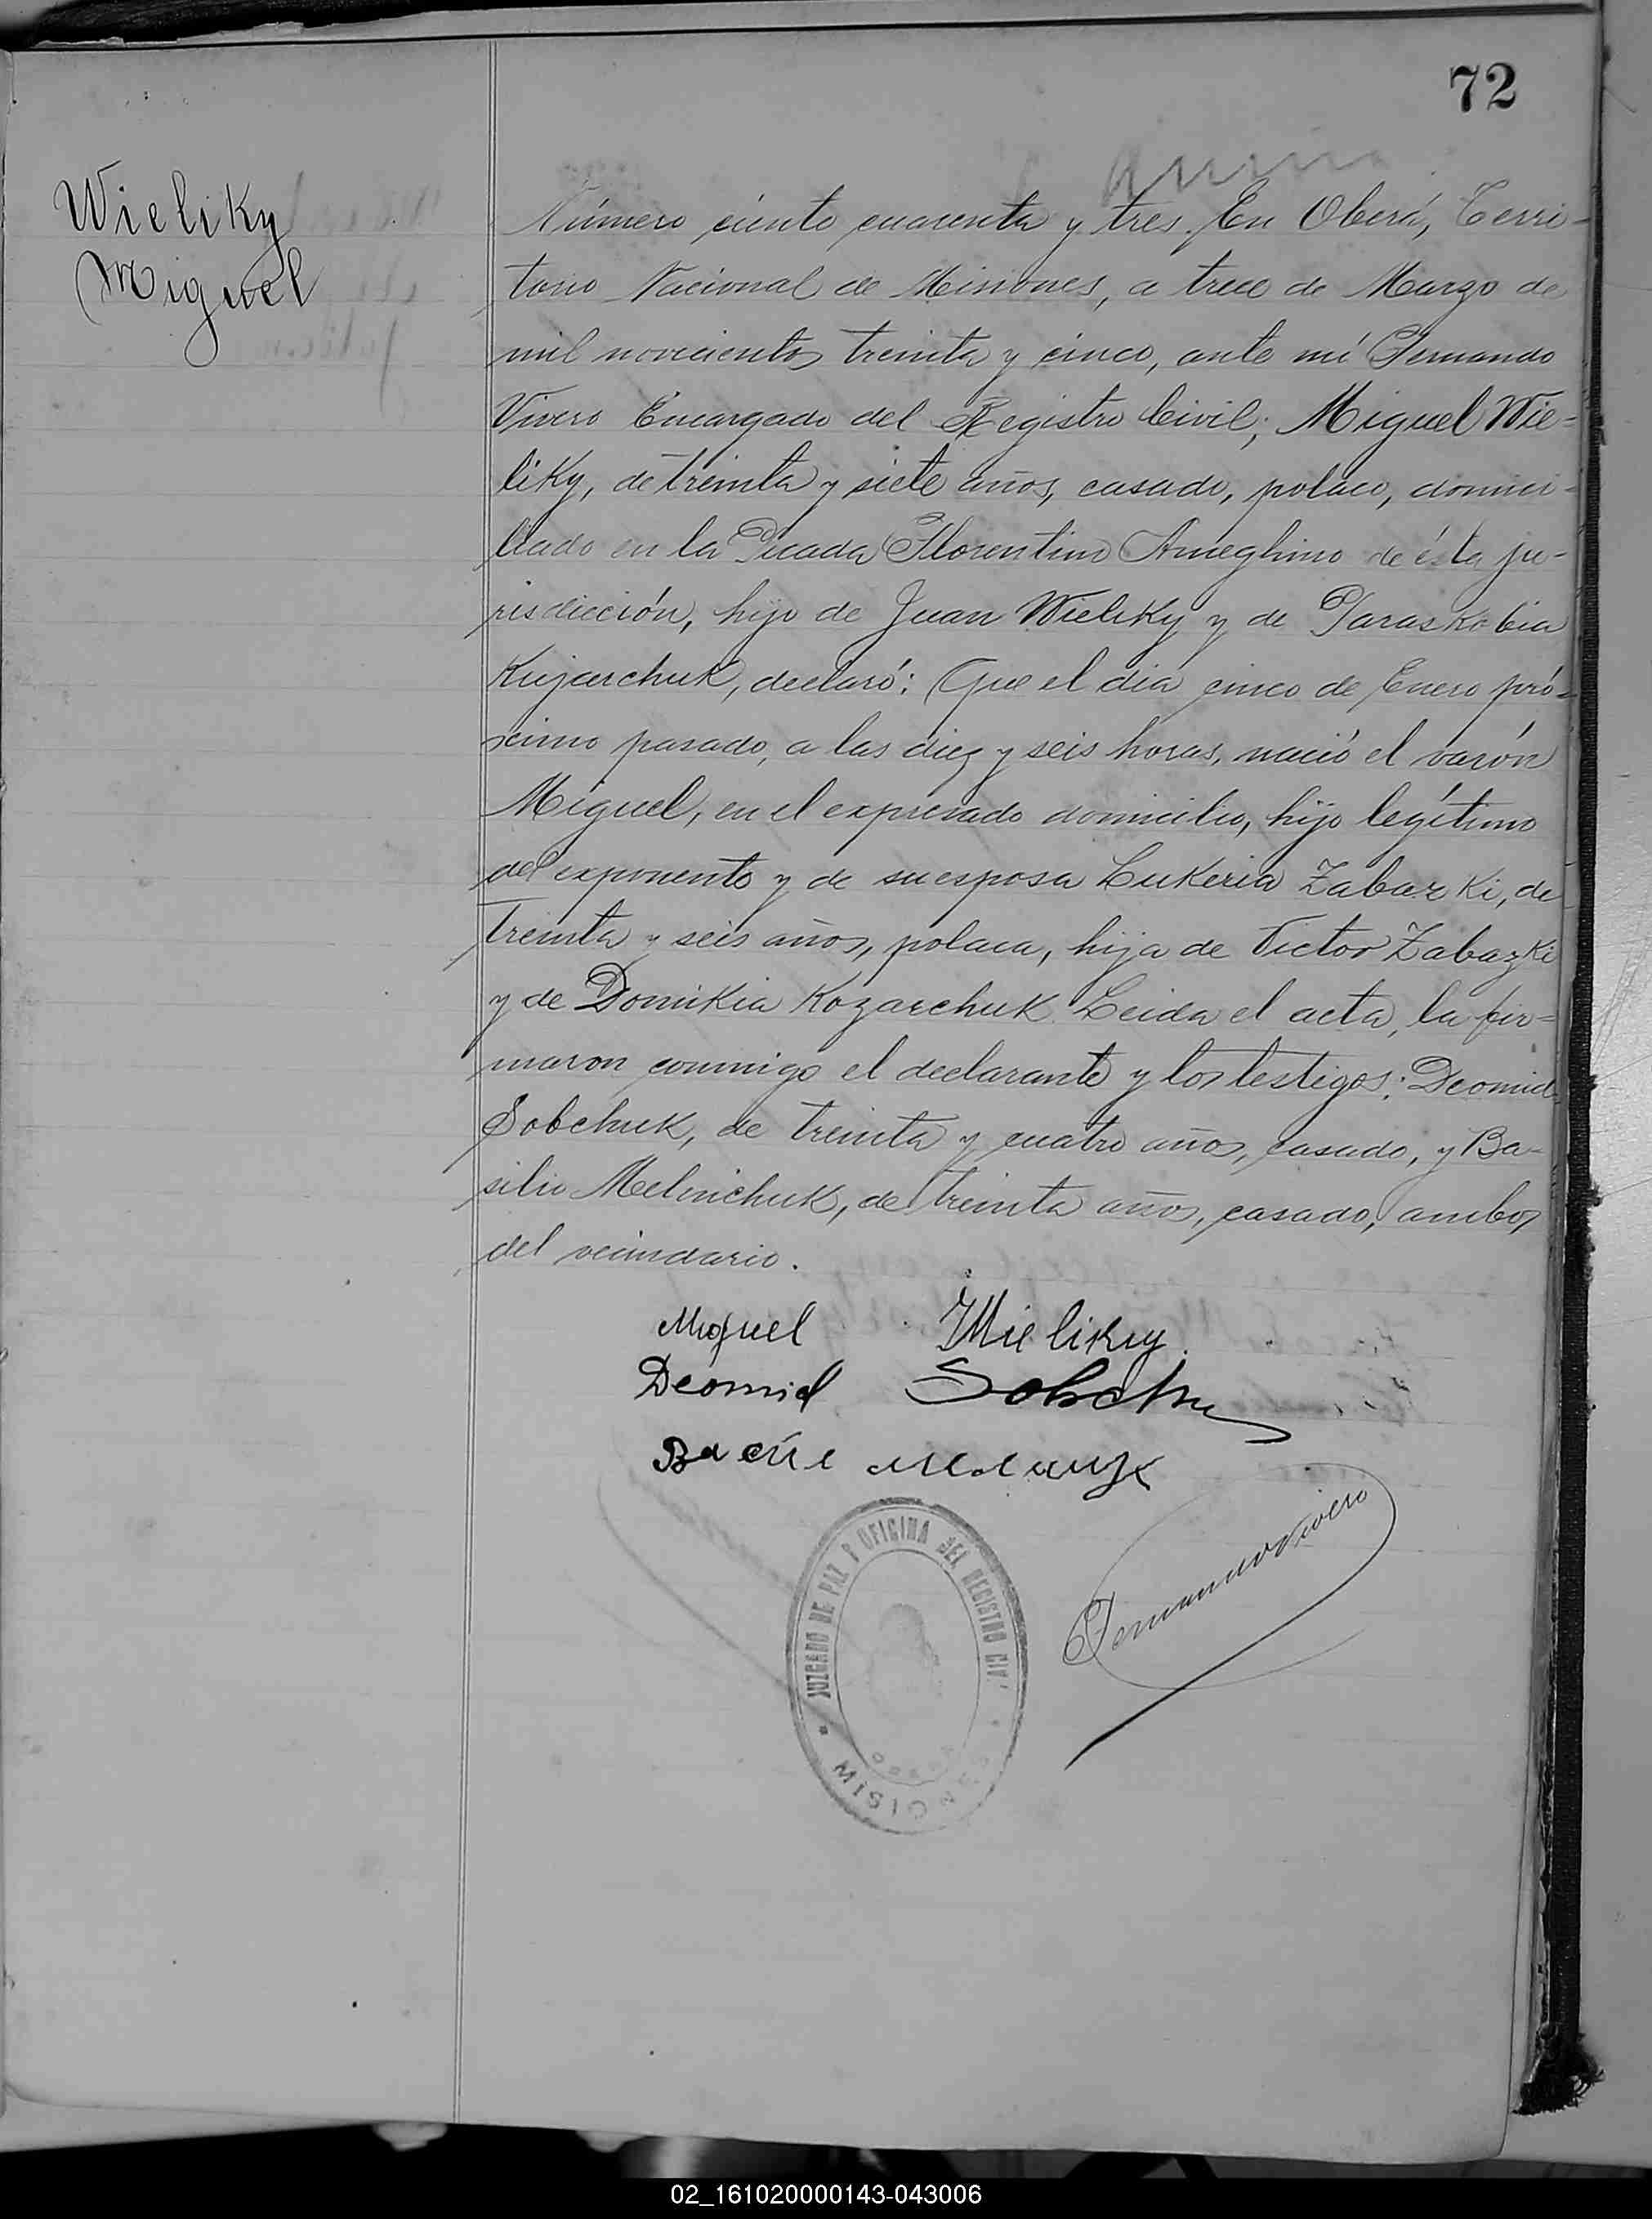 72
Wieliky
Miguel
Número ciento cuarenta y tres. En Oberá, Terri-
torio Nacional de Misiones, a trece de Marzo de
mil novecientos treinta y cinco, ante mí Fernando
Vivero Encargado del Registro Civil; Miguel Wie-
liky, de treinta y siete años, casado, polaco, domici-
liado en la Picada Florentino Ameghino de ésta ju-
risdicción, hijo de Juan Wieliky y de Paraskobia
Kujarchuk, declaró: Que el día cinco de Enero pró-
ximo pasado, a las diez y seis horas, nació el varón
Miguel, en el expresado domicilio, hijo legítimo
del exponente y de su esposa Lukeria Zabazki, de
treinta y seis años, polaca, hija de Victor Zabazki
y de Domikia Kozarchuk. Leida el acta, la fir-
maron conmigo el declarante y los testigos: Deomid
Sobchuk, de treinta y cuatro años, casado, y Ba-
silio Melnichuk, de treinta años, casado, ambos
del vecindario.
Miguel Wieliky.
Deomid Sobchu
Fernando Vivero
JUZGADO DE PAZ Y OFICINA DEL REGISTRO CIV
MISIONES
02_161020000143-043006